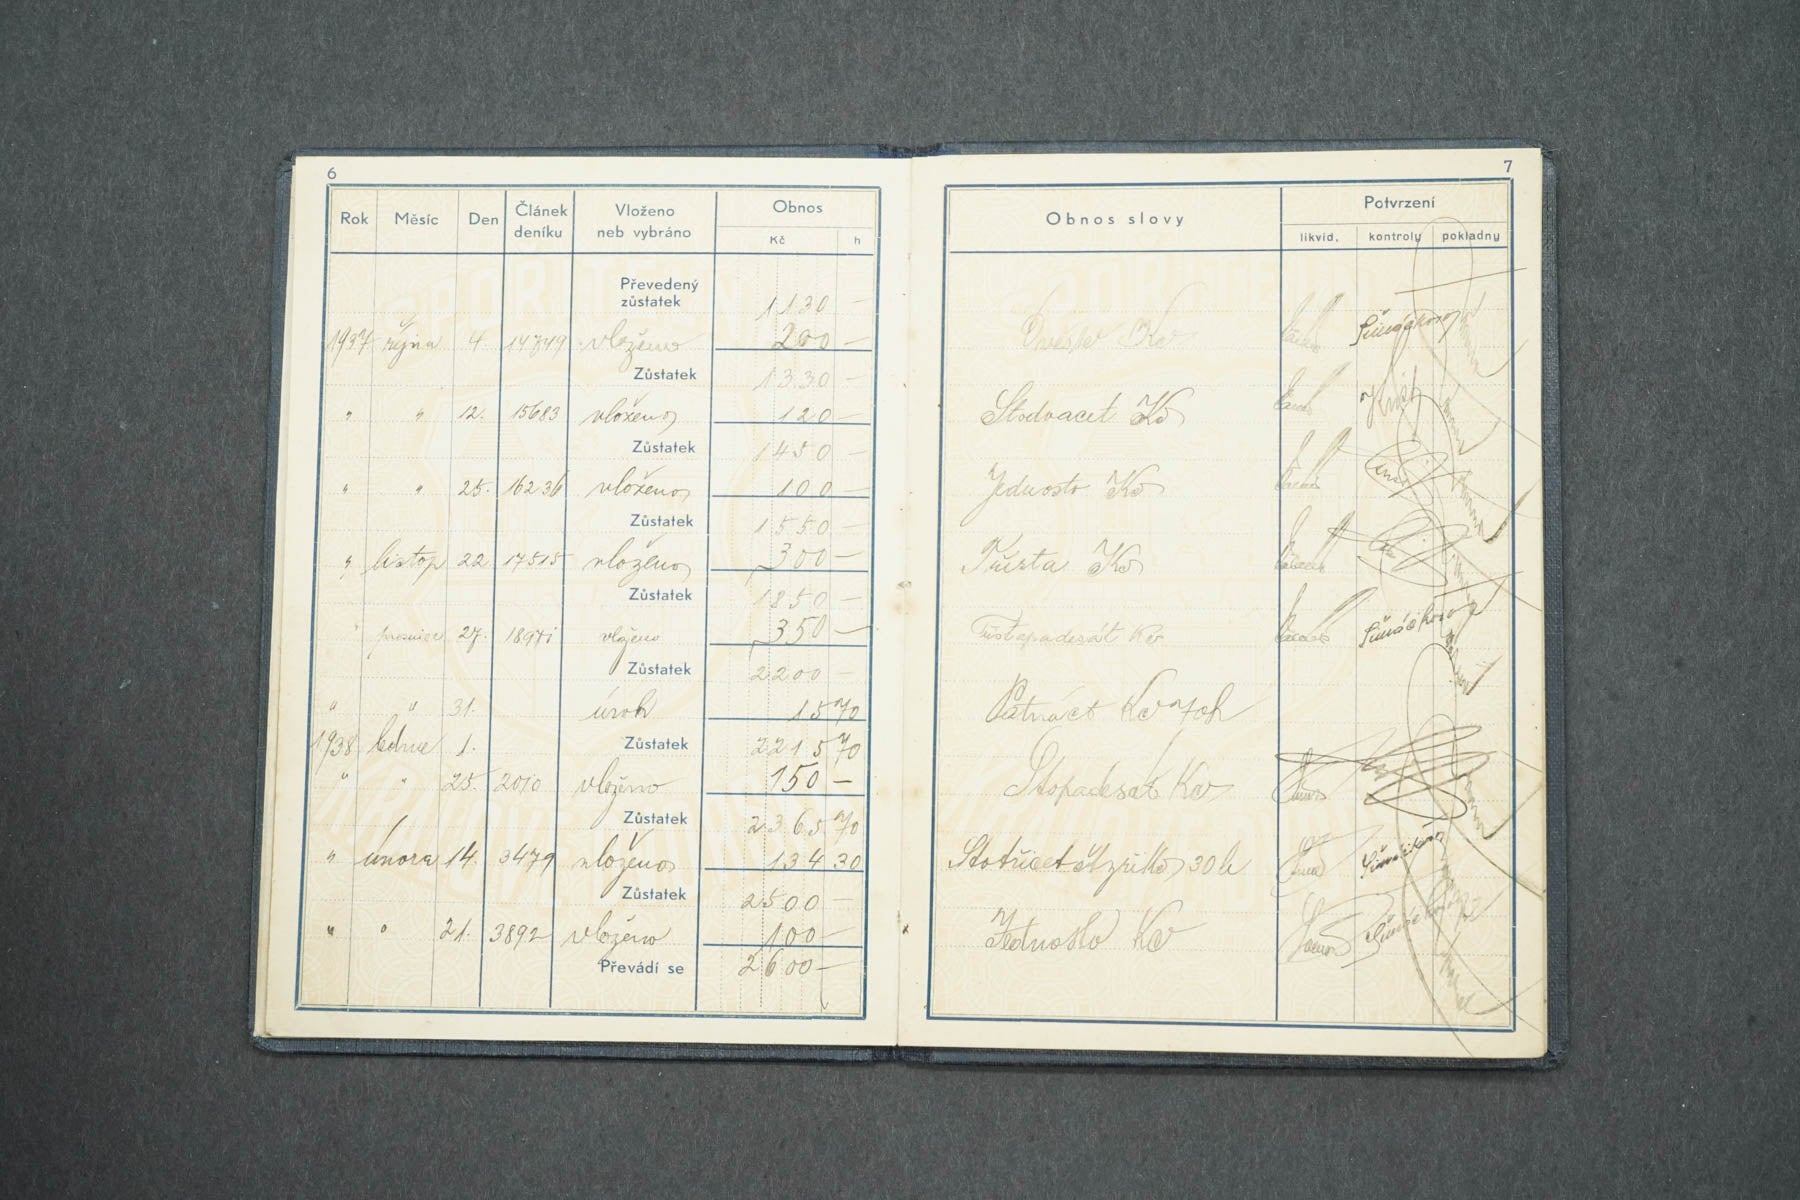 6
Rok Měsíc Den Článek deníku Vloženo neb vybráno Obnos
Kč h
Převedený zůstatek 1130 —
1937 října 4 14749 vloženo 200 —
Zůstatek 1330 —
" " 12. 15683 vloženo 120 —
Zůstatek 1450 —
" " 25. 16236 vloženo 100 —
Zůstatek 1550 —
" listop 22 17515 vloženo 300 —
Zůstatek 1850 —
" prosince 27. 18971 vloženo 350 —
Zůstatek 2200 —
" " 31. úrok 15 70
1938 ledna 1. Zůstatek 2215 70
" " 25. 2010 vloženo 150 —
Zůstatek 2365 70
" února 14. 3479 vloženo 134 30
Zůstatek 2500 —
" " 21. 3892 vloženo 100 —
Převádí se 2600 —
7
Obnos slovy Potvrzení
likvid. kontroly pokladny
Dvěstě Kč
Stodvacet Kč
Jednosto Kč
Třista Kč
Třistapadesát Kč
Patnáct Kč 70h
Stopadesát Kč
Stotřicetčtyři Kč 30 h
Jednosto Kč